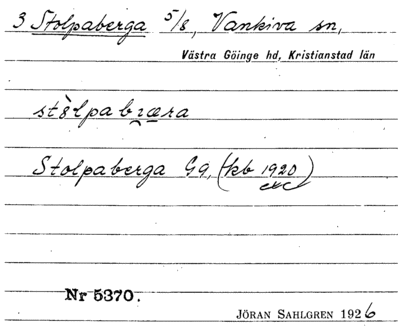 3 Stolpaberga 5/8, Vankiva sn,
Västra Göinge hd, Kristianstad län
Stolpaberga Gg, (kb 1920)
Nr 5370.
JÖRAN SAHLGREN 1926